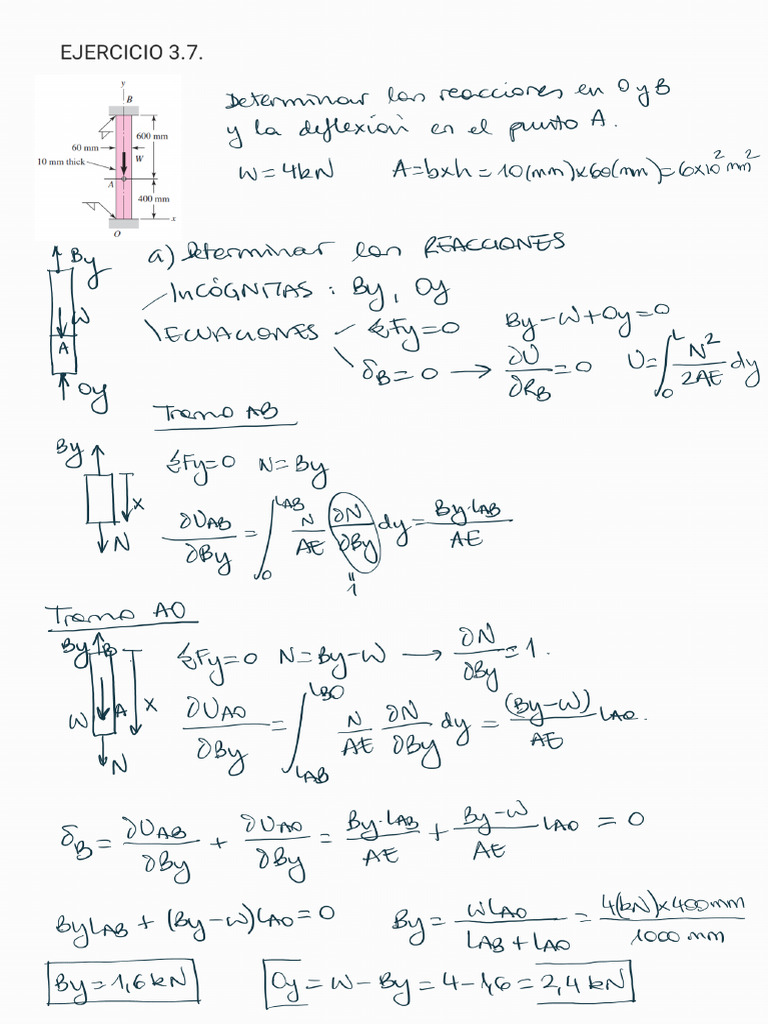 EJERCICIO 3.7.
y
B
600 mm
60 mm
W
10 mm thick
A
400 mm
x
O
Determinar las reacciones en O y B
y la deflexión en el punto A.
W=4kN A=b×h=10(mm)×60(mm)=6×10² mm²
a) Determinar las REACCIONES
INCÓGNITAS: By, Oy
ECUACIONES ΣFy=0 By-W+Oy=0
δB=0 → ∂U/∂RB=0 U=∫₀ᴸ N²/2AE dy
By
W
A
Oy
Tramo AB
By
x
N
ΣFy=0 N=By
∂UAB/∂By=∫₀^LAB N/AE ∂N/∂By dy=By·LAB/AE
"
1
Tramo AO
By
B
W
A
x
N
ΣFy=0 N=By-W → ∂N/∂By=1.
∂UAO/∂By=∫_LAB^LBO N/AE ∂N/∂By dy=(By-W)/AE LAO.
δB=∂UAB/∂By+∂UAO/∂By=By·LAB/AE+By-W/AE LAO=0
ByLAB+(By-W)LAO=0 By=WLAO/LAB+LAO=4(kN)×400mm/1000mm
By=1,6kN Oy=W-By=4-1,6=2,4kN